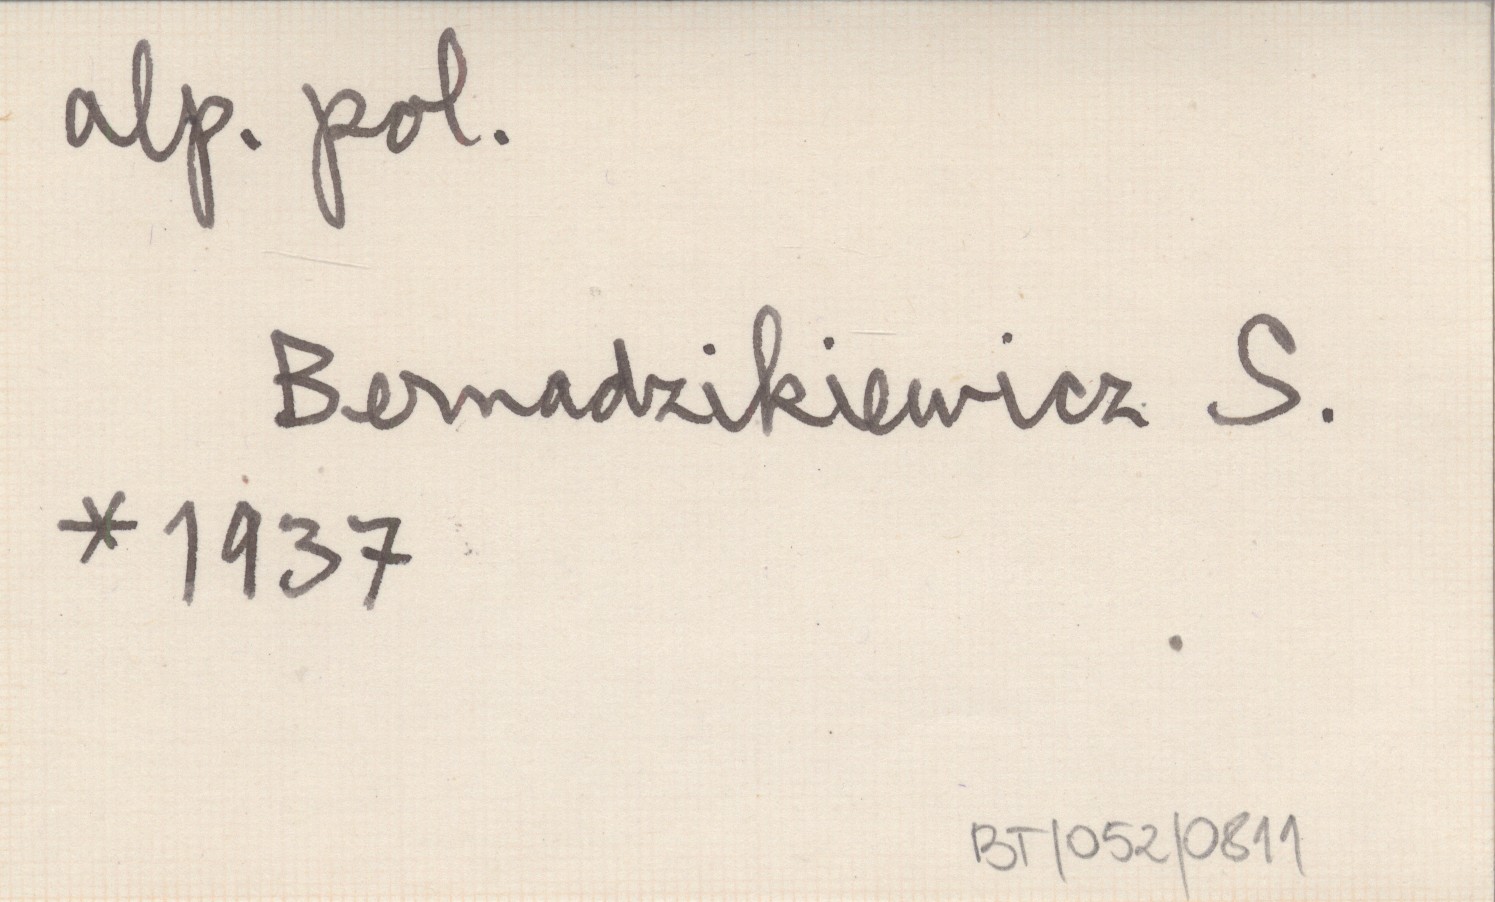 alp. pol.
Bernadzikiewicz S.
* 1937
BT/052/0811